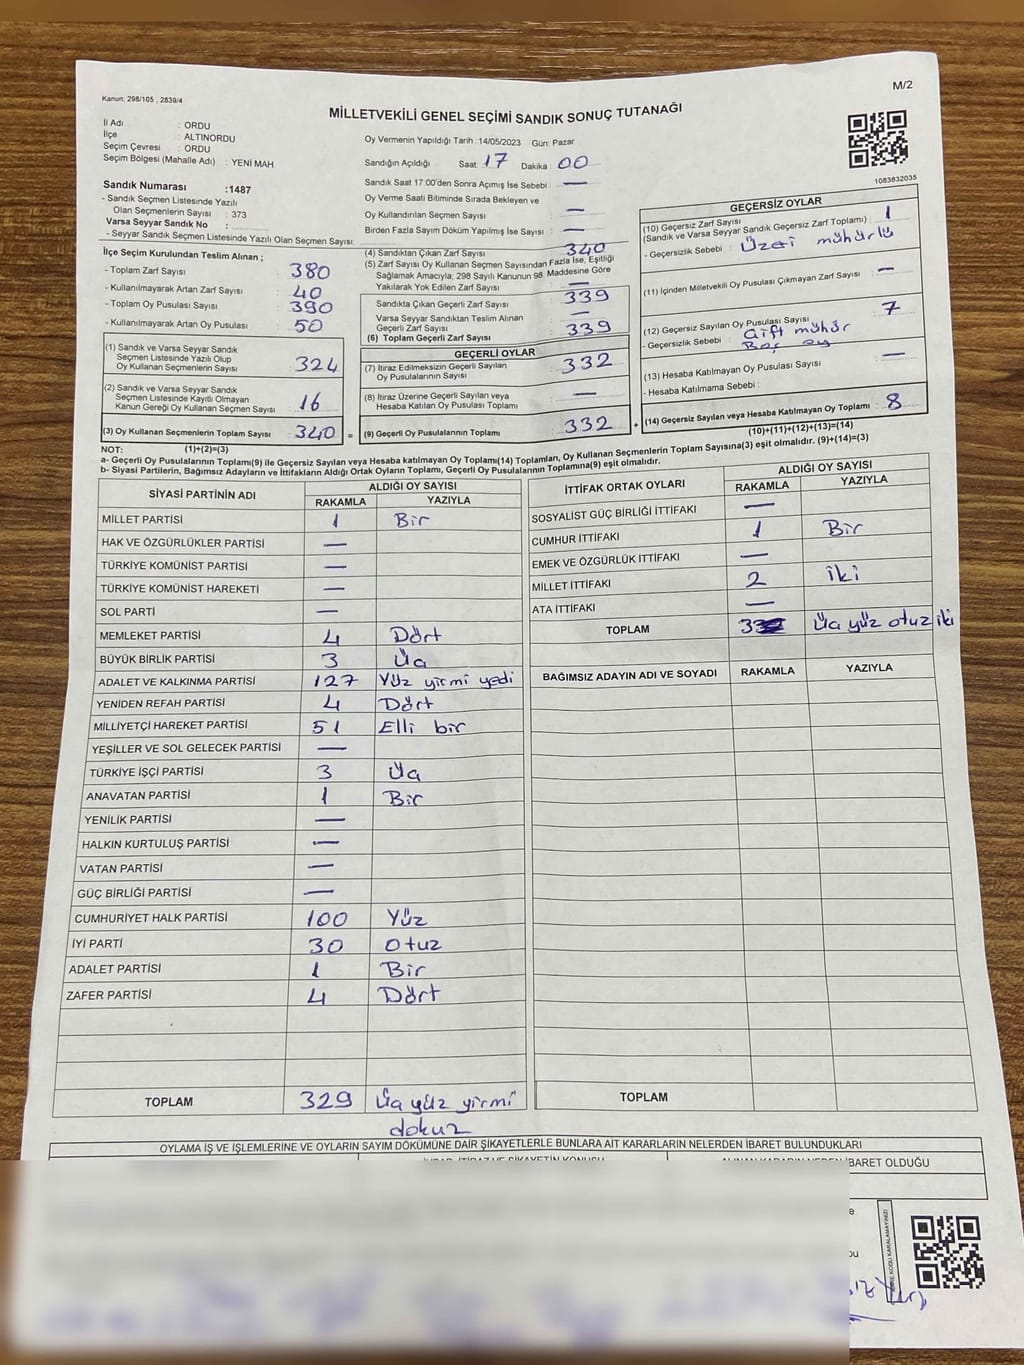 Kanun; 298/105 , 2839/4
M/2
MİLLETVEKİLİ GENEL SEÇİMİ SANDIK SONUÇ TUTANAĞI
İl Adı : ORDU
İlçe : ALTINORDU
Seçim Çevresi : ORDU
Seçim Bölgesi (Mahalle Adı) : YENİ MAH.
Sandık Numarası :1487
- Sandık Seçmen Listesinde Yazılı
Olan Seçmenlerin Sayısı : 373
Varsa Seyyar Sandık No :
- Seyyar Sandık Seçmen Listesinde Yazılı Olan Seçmen Sayısı:
İlçe Seçim Kurulundan Teslim Alınan ;
- Toplam Zarf Sayısı : 380
- Kullanılmayarak Artan Zarf Sayısı : 40
- Toplam Oy Pusulası Sayısı : 390
- Kullanılmayarak Artan Oy Pusulası : 50
(1) Sandık ve Varsa Seyyar Sandık
Seçmen Listesinde Yazılı Olup
Oy Kullanan Seçmenlerin Sayısı : 324
(2) Sandık ve Varsa Seyyar Sandık
Seçmen Listesinde Kayıtlı Olmayan
Kanun Gereği Oy Kullanan Seçmen Sayısı : 16
(3) Oy Kullanan Seçmenlerin Toplam Sayısı : 340 =
Oy Vermenin Yapıldığı Tarih : 14/05/2023 Gün: Pazar
Sandığın Açıldığı Saat 17 Dakika 00
Sandık Saat 17:00'den Sonra Açımış İse Sebebi : —
Oy Verme Saati Bitiminde Sırada Bekleyen ve
Oy Kullandırılan Seçmen Sayısı : —
Birden Fazla Sayım Döküm Yapılmış İse Sayısı : —
(4) Sandıktan Çıkan Zarf Sayısı : 340
(5) Zarf Sayısı Oy Kullanan Seçmen Sayısından Fazla İse, Eşitliği
Sağlamak Amacıyla; 298 Sayılı Kanunun 98. Maddesine Göre
Yakılarak Yok Edilen Zarf Sayısı : —
Sandıkta Çıkan Geçerli Zarf Sayısı : 339
Varsa Seyyar Sandıktan Teslim Alınan
Geçerli Zarf Sayısı : —
(6) Toplam Geçerli Zarf Sayısı : 339
GEÇERLİ OYLAR
(7) İtiraz Edilmeksizin Geçerli Sayılan
Oy Pusulalarının Sayısı : 332
(8) İtiraz Üzerine Geçerli Sayılan veya
Hesaba Katılan Oy Pusulası Toplamı : —
(9) Geçerli Oy Pusulalarının Toplamı : 332 +
1083832035
GEÇERSİZ OYLAR
(10) Geçersiz Zarf Sayısı : 1
(Sandık ve Varsa Seyyar Sandık Geçersiz Zarf Toplamı)
- Geçersizlik Sebebi : Üzeri mühürlü
(11) İçinden Milletvekili Oy Pusulası Çıkmayan Zarf Sayısı : —
(12) Geçersiz Sayılan Oy Pusulası Sayısı : 7
- Geçersizlik Sebebi : Çift mühür
Boş oy
(13) Hesaba Katılmayan Oy Pusulası Sayısı : —
- Hesaba Katılmama Sebebi :
(14) Geçersiz Sayılan veya Hesaba Katılmayan Oy Toplamı : 8
NOT: (1)+(2)=(3) (10)+(11)+(12)+(13)=(14)
a- Geçerli Oy Pusulalarının Toplamı(9) ile Geçersiz Sayılan veya Hesaba katılmayan Oy Toplamı(14) Toplamları, Oy Kullanan Seçmenlerin Toplam Sayısına(3) eşit olmalıdır. (9)+(14)=(3)
b- Siyasi Partilerin, Bağımsız Adayların ve İttifakların Aldığı Ortak Oyların Toplamı, Geçerli Oy Pusulalarının Toplamına(9) eşit olmalıdır.
SİYASİ PARTİNİN ADI ALDIĞI OY SAYISI
RAKAMLA YAZIYLA
MİLLET PARTİSİ 1 Bir
HAK VE ÖZGÜRLÜKLER PARTİSİ —
TÜRKİYE KOMÜNİST PARTİSİ —
TÜRKİYE KOMÜNİST HAREKETİ —
SOL PARTİ —
MEMLEKET PARTİSİ 4 Dört
BÜYÜK BİRLİK PARTİSİ 3 Üç
ADALET VE KALKINMA PARTİSİ 127 Yüz yirmi yedi
YENİDEN REFAH PARTİSİ 4 Dört
MİLLİYETÇİ HAREKET PARTİSİ 51 Elli bir
YEŞİLLER VE SOL GELECEK PARTİSİ —
TÜRKİYE İŞÇİ PARTİSİ 3 Üç
ANAVATAN PARTİSİ 1 Bir
YENİLİK PARTİSİ —
HALKIN KURTULUŞ PARTİSİ —
VATAN PARTİSİ —
GÜÇ BİRLİĞİ PARTİSİ —
CUMHURİYET HALK PARTİSİ 100 Yüz
İYİ PARTİ 30 Otuz
ADALET PARTİSİ 1 Bir
ZAFER PARTİSİ 4 Dört
TOPLAM 329 Üç yüz yirmi
dokuz
İTTİFAK ORTAK OYLARI ALDIĞI OY SAYISI
RAKAMLA YAZIYLA
SOSYALİST GÜÇ BİRLİĞİ İTTİFAKI —
CUMHUR İTTİFAKI 1 Bir
EMEK VE ÖZGÜRLÜK İTTİFAKI —
MİLLET İTTİFAKI 2 İki
ATA İTTİFAKI —
TOPLAM 332 Üç yüz otuz iki
BAĞIMSIZ ADAYIN ADI VE SOYADI RAKAMLA YAZIYLA
TOPLAM
OYLAMA İŞ VE İŞLEMLERİNE VE OYLARIN SAYIM DÖKÜMÜNE DAİR ŞİKAYETLERLE BUNLARA AİT KARARLARIN NELERDEN İBARET BULUNDUKLARI
İBARET OLDUĞU